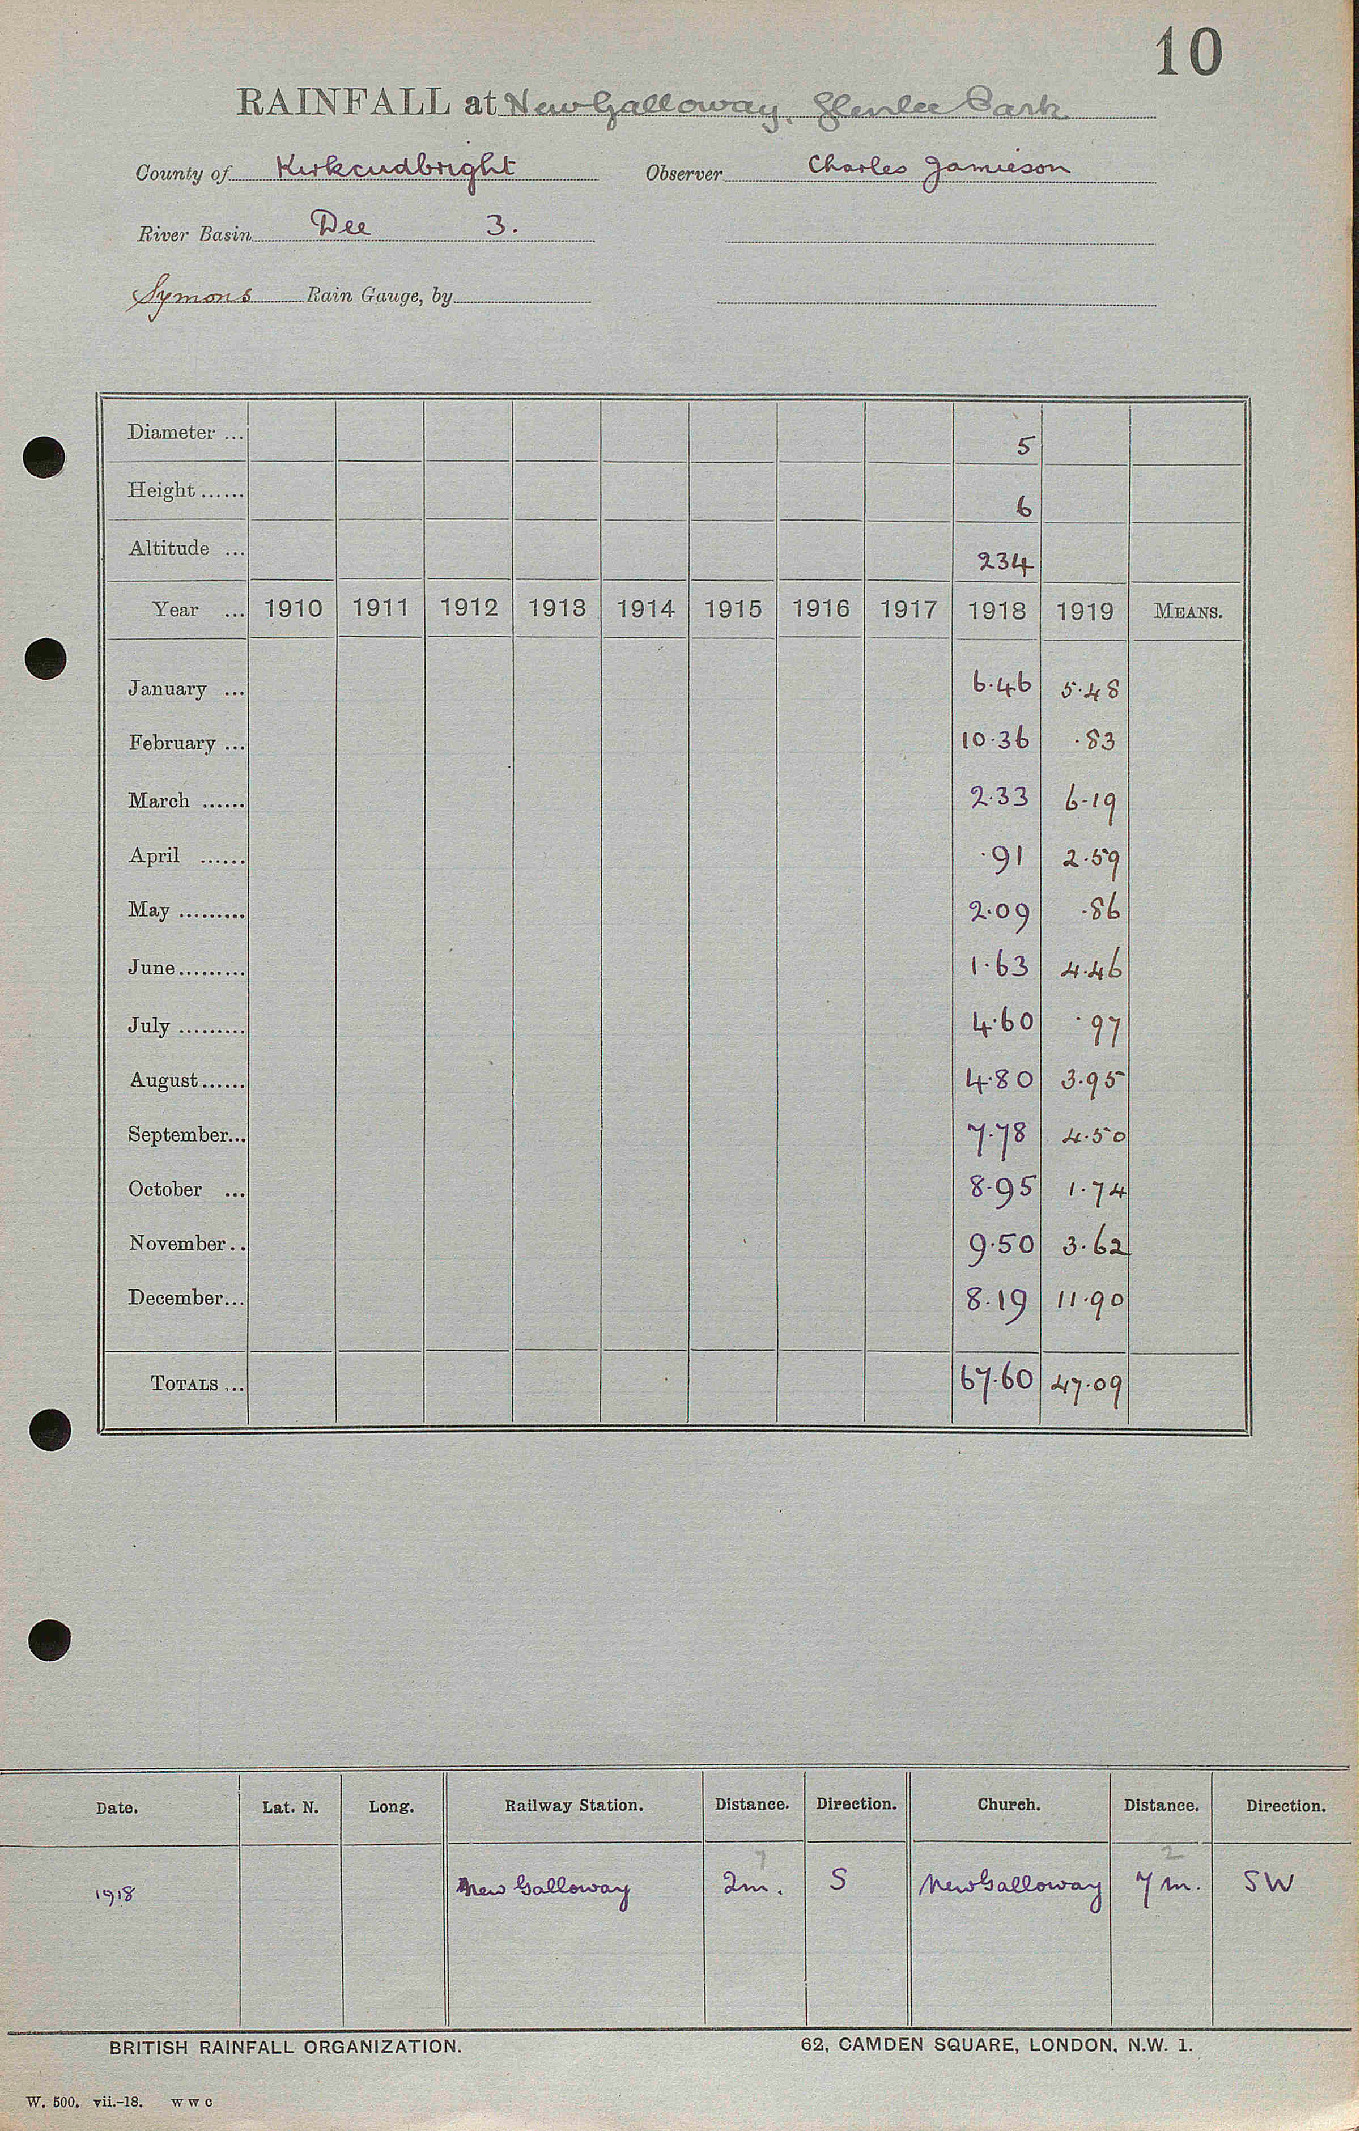 10
RAINFALL at New Galloway, Glenlee Park
County of Kirkcudbright Observer Charles Jamieson
River Basin Dee 3.
Symons Rain Gauge, by
Diameter ... 5
Height ...... 6
Altitude ... 234
Year ... 1910 1911 1912 1913 1914 1915 1916 1917 1918 1919 MEANS.
January ... 6.46 5.48
February ... 10.36 .83
March ...... 2.33 6.19
April ...... .91 2.59
May ......... 2.09 .86
June ......... 1.63 4.46
July ......... 4.60 .97
August ...... 4.80 3.95
September... 7.78 4.50
October ... 8.95 1.74
November.. 9.50 3.62
December... 8.19 11.90
TOTALS ... 67.60 47.09
Date. Lat. N. Long. Railway Station. Distance. Direction. Church. Distance. Direction.
7 2
1918 New Galloway 2m. S New Galloway 7 m. SW
BRITISH RAINFALL ORGANIZATION. 62, CAMDEN SQUARE, LONDON, N.W. 1.
W. 500. vii.-18. W W C